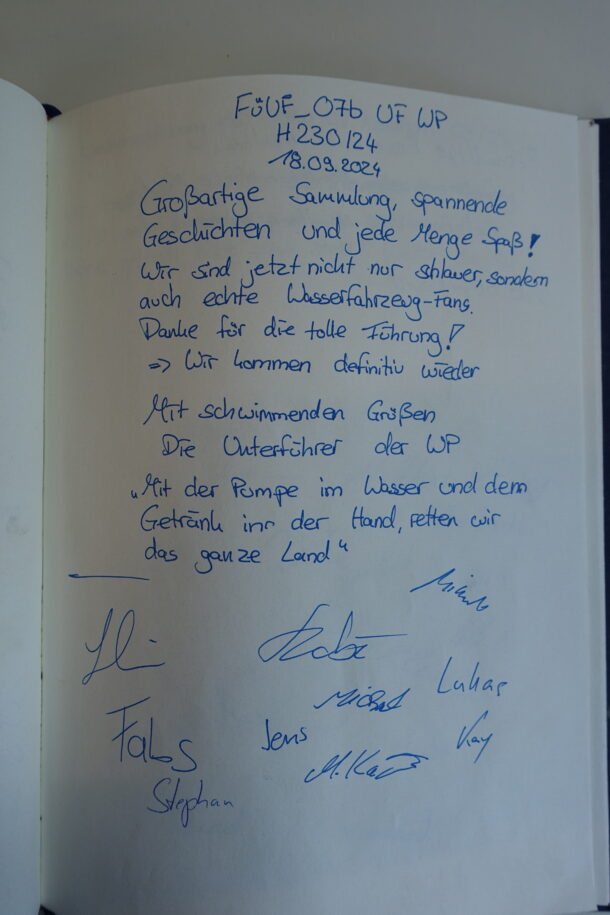 FüUF_07b UF WP
H230/24
18.09.2024
Großartige Sammlung, spannende
Geschichten und jede Menge Spaß!
Wir sind jetzt nicht nur schlauer, sondern
auch echte Wasserfahrzeug-Fans.
Danke für die tolle Führung!
=> Wir kommen definitiv wieder
Mit schwimmenden Grüßen
Die Unterführer der WP
„Mit der Pumpe im Wasser und dem
Getränk in der Hand, retten wir
das ganze Land“
Michael
Lukas
Fabs
Jens
Kay
Stephan